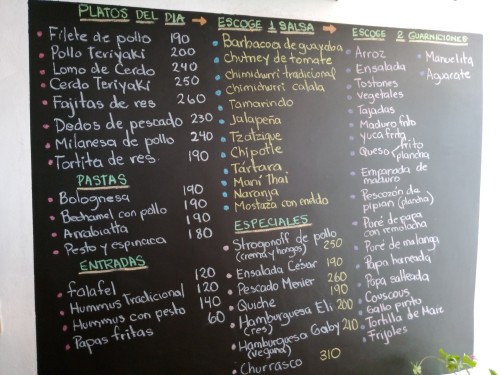 PLATOS DEL DIA →
Filete de pollo 190
Pollo Teriyaki 200
Lomo de Cerdo 240
Cerdo Teriyaki 250
Fajitas de res 260
Dedos de pescado 230
Milanesa de pollo 240
Tortita de res 190
PASTAS
Bolognesa 190
Bechamel con pollo 190
Arrabiatta 190
Pesto y espinaca 180
ENTRADAS
Falafel 120
Hummus Tradicional 120
Hummus con pesto 140
Papas fritas 60
ESCOGE 1 SALSA →
Barbacoa de guayaba
Chutney de tomate
chimichurri tradicional
chimichurri calala
Tamarindo
Jalapeña
Tzatzique
Chipotle
Tártara
Maní Thai
Naranja
Mostaza con eneldo
ESPECIALES
Strogonoff de pollo
(crema y hongos) 250
Ensalada César 190
Pescado Menier 260
Quiche 190
Hamburguesa Eli 200
(res)
Hamburguesa Gaby 210
(vegana)
Churrasco 310
ESCOGE 2 GUARNICIONES
Arroz
Ensalada
Tostones
Vegetales
Tajadas
Maduro frito
yuca frita
Queso frito
plancha
Empanada de
maduro
Pescozón de
pipian (plancha)
Puré de papa
con remolacha
Puré de malanga
Papa horneada
Papa salteada
Couscous
Gallo pinto
Tortilla de Maiz
Frijoles
Manuelita
Aguacate